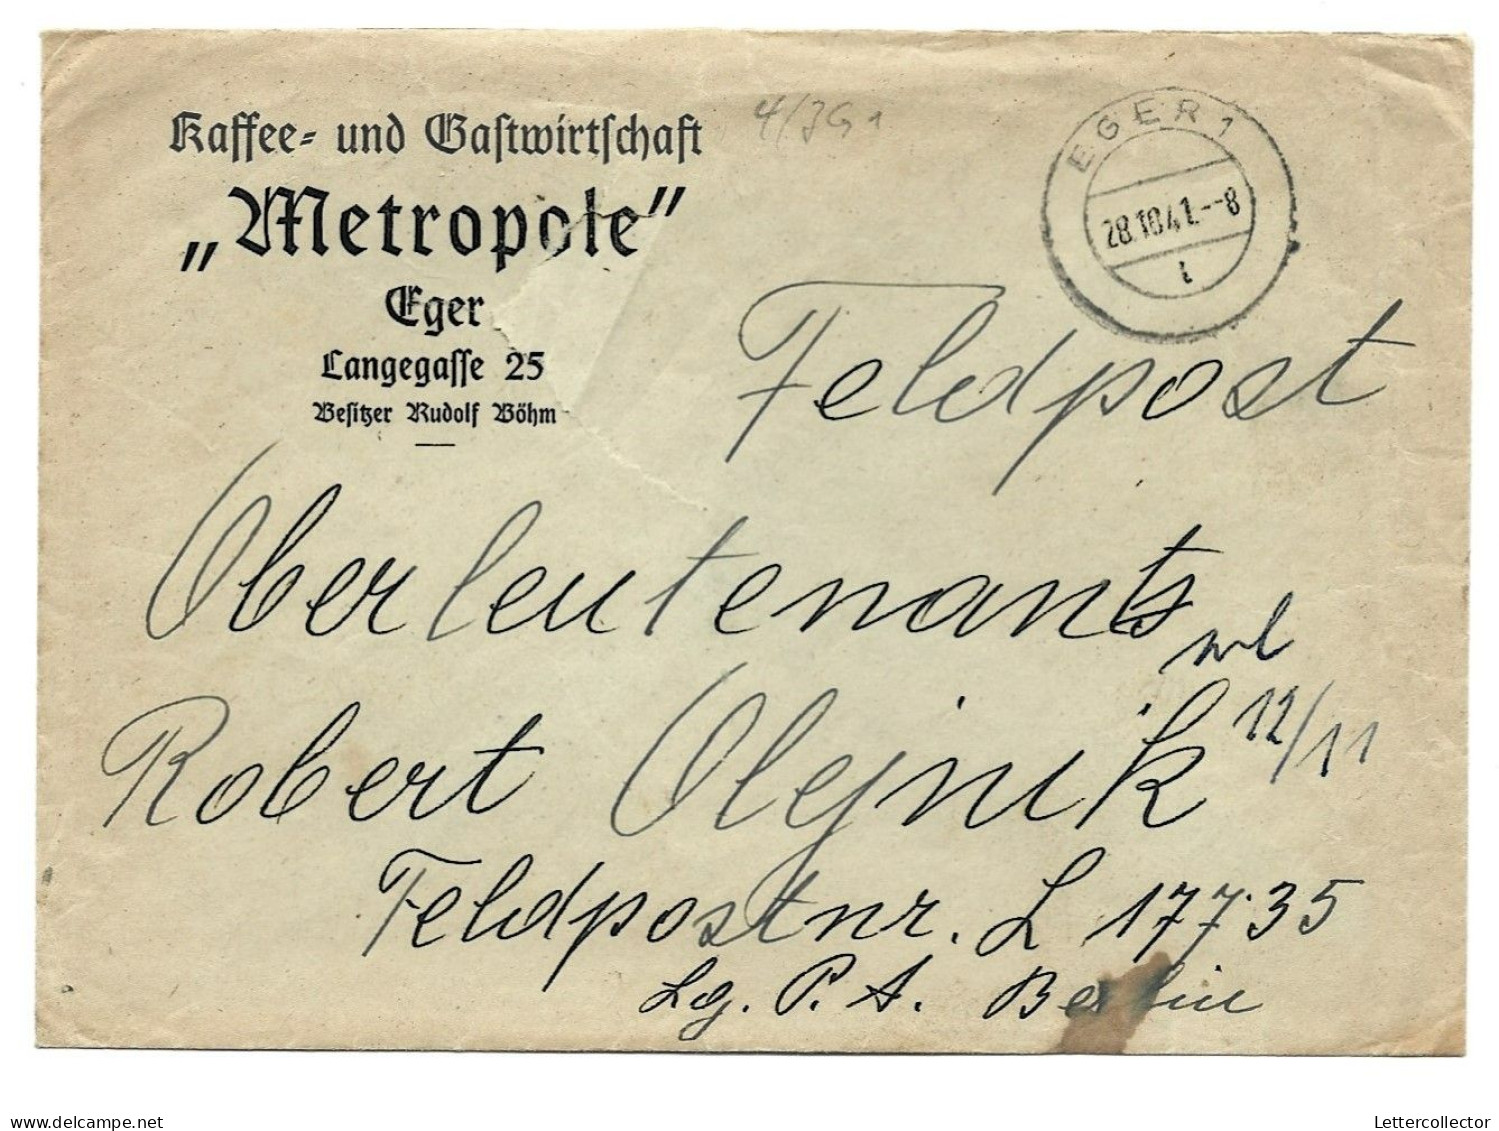 Kaffee- und Gastwirtschaft
„Metropole”
Eger
Langegasse 25
Besitzer Rudolf Böhm
4/JG 1
EGER 1
28.10.41.--8
Feldpost
Oberleutenants
Robert Olejnik
12/11
Feldpostnr. L 17735
Lg. P. A. Berlin
delcampe.net
Lettercollector